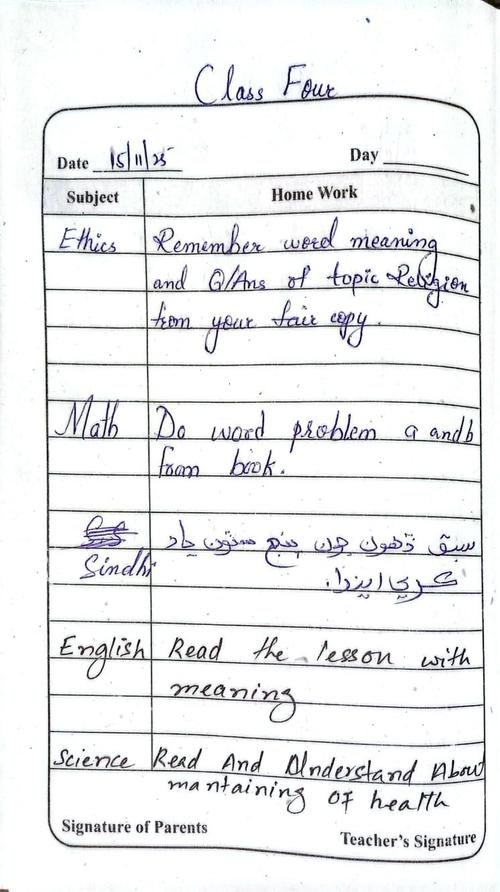 Class Four
Date 15/11/25 Day
Subject Home Work
Ethics Remember word meaning
and Q/Ans of topic Religion
from your fair copy.
Math Do word problem a and b
from book.
سبق ڏهون جون پنج سٽون ياد
Sindhi ڪري ايندا.
English Read the lesson with
meaning
Science Read And Understand About
mantaining OF health
Signature of Parents Teacher's Signature